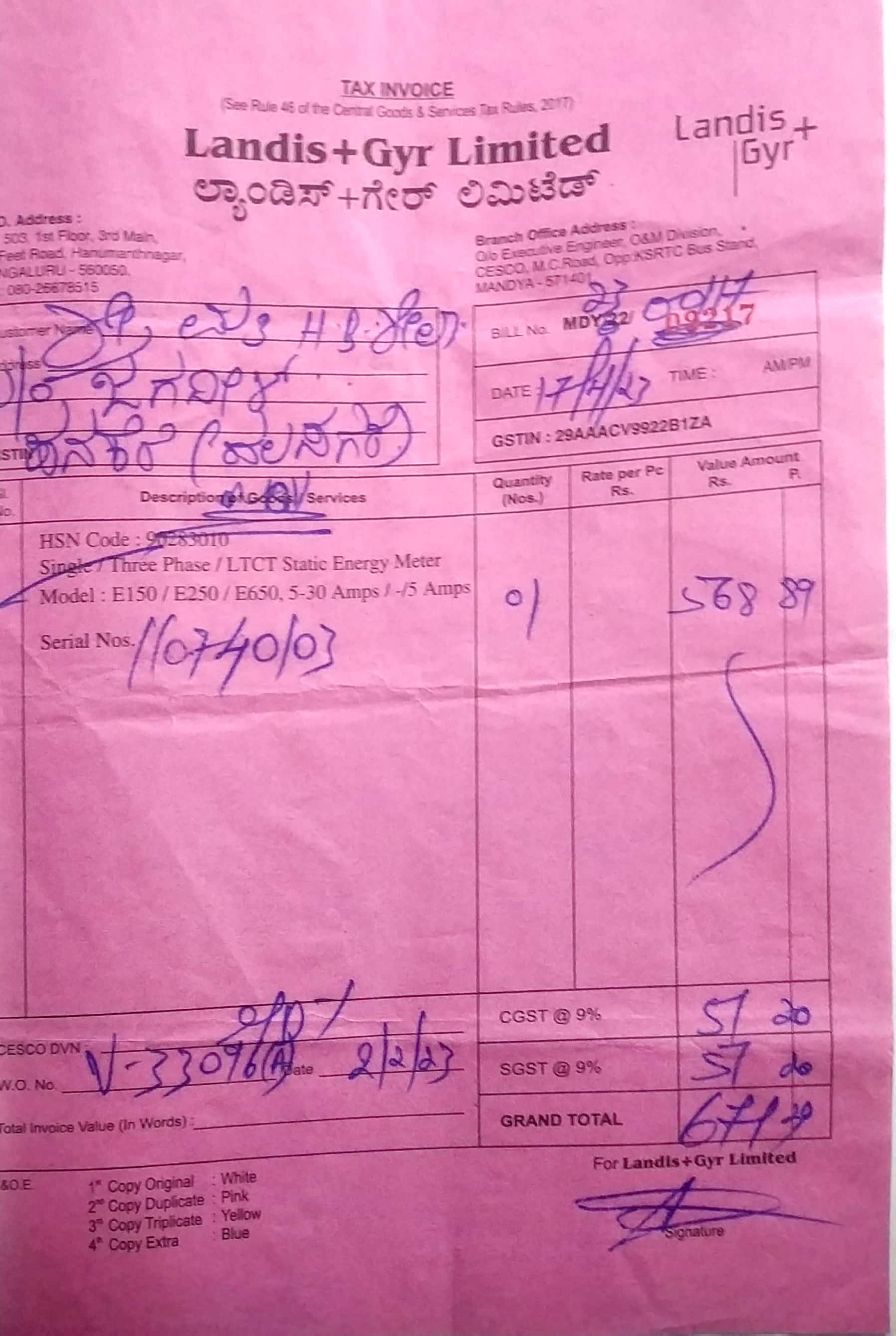 TAX INVOICE
(See Rule 46 of the Central Goods & Services Tax Rules, 2017)
Landis+Gyr Limited
Landis+
Gyr
ಲ್ಯಾಂಡಿಸ್+ಗೇರ್ ಲಿಮಿಟೆಡ್
Address :
503, 1st Floor, 3rd Main,
Feet Road, Hanumanthnagar,
NGALURU - 560050.
080-26678515
Branch Office Address :
O/o Executive Engineer, O&M Division,
CESCO, M.C.Road, Opp:KSRTC Bus Stand,
MANDYA - 571401
ustomer Name
BILL No. MDY
DATE 17/4/23 TIME : AM/PM
GSTIN : 29AAACV9922B1ZA
Description of Goods / Services
Quantity (Nos.)
Rate per Pc Rs.
Value Amount Rs. P.
HSN Code : 90283010
Single / Three Phase / LTCT Static Energy Meter
Model : E150 / E250 / E650, 5-30 Amps / -/5 Amps 01 568 89
Serial Nos. 11074003
CGST @ 9% 51 20
CESCO DVN
W.O. No. V-33096(A) Date 2/2/23
SGST @ 9% 51 20
Total Invoice Value (In Words) :
GRAND TOTAL 671
&O.E.
For Landis+Gyr Limited
1st Copy Original : White
2nd Copy Duplicate : Pink
3rd Copy Triplicate : Yellow
4th Copy Extra : Blue
Signature